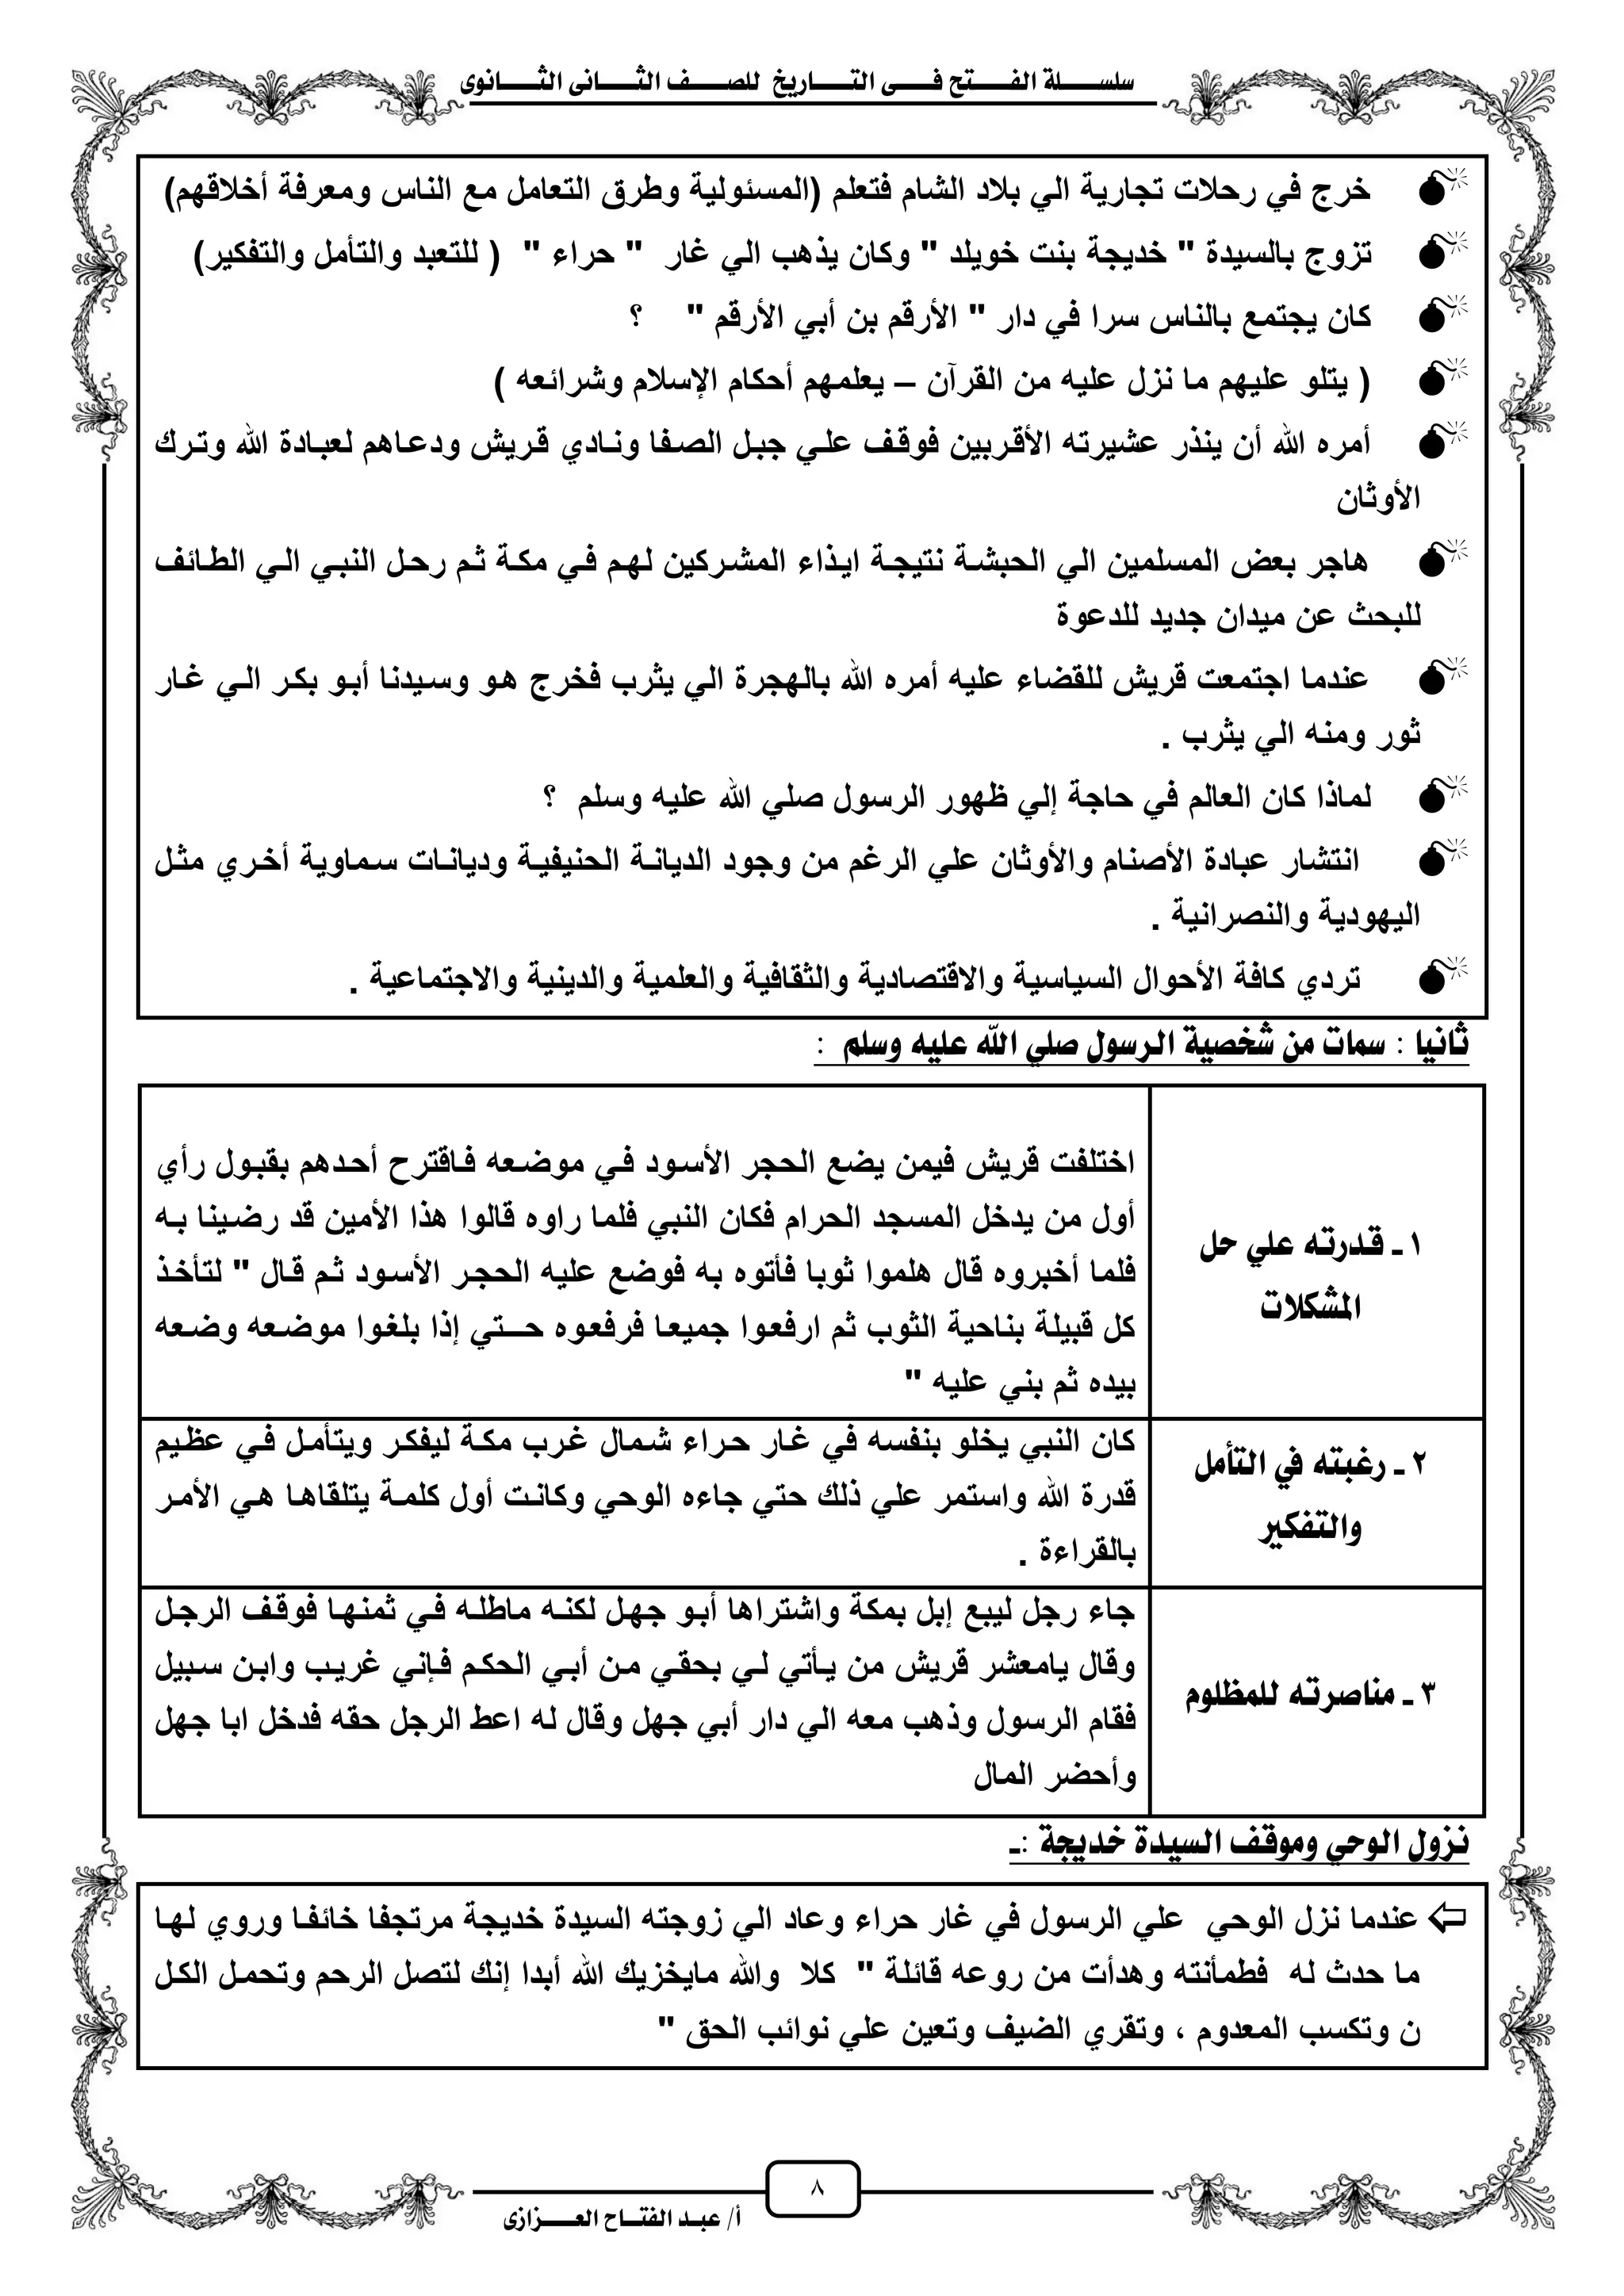 سلسلة الفتح فى التاريخ للصف الثانى الثانوى
خرج في رحلات تجارية الي بلاد الشام فتعلم (المسئولية وطرق التعامل مع الناس ومعرفة أخلاقهم)
تزوج بالسيدة " خديجة بنت خويلد " وكان يذهب الي غار " حراء " ( للتعبد والتأمل والتفكير)
كان يجتمع بالناس سرا في دار " الأرقم بن أبي الأرقم " ؟
( يتلو عليهم ما نزل عليه من القرآن – يعلمهم أحكام الإسلام وشرائعه )
أمره الله أن ينذر عشيرته الأقربين فوقف علي جبل الصفا ونادي قريش ودعاهم لعبادة الله وترك
الأوثان
هاجر بعض المسلمين الي الحبشة نتيجة ايذاء المشركين لهم في مكة ثم رحل النبي الي الطائف
للبحث عن ميدان جديد للدعوة
عندما اجتمعت قريش للقضاء عليه أمره الله بالهجرة الي يثرب فخرج هو وسيدنا أبو بكر الي غار
ثور ومنه الي يثرب .
لماذا كان العالم في حاجة إلي ظهور الرسول صلي الله عليه وسلم ؟
انتشار عبادة الأصنام والأوثان علي الرغم من وجود الديانة الحنيفية وديانات سماوية أخري مثل
اليهودية والنصرانية .
تردي كافة الأحوال السياسية والاقتصادية والثقافية والعلمية والدينية والاجتماعية .
ثانيا : سمات من شخصية الرسول صلي الله عليه وسلم :
١ ـ قدرته علي حل
المشكلات
اختلفت قريش فيمن يضع الحجر الأسود في موضعه فاقترح أحدهم بقبول رأي
أول من يدخل المسجد الحرام فكان النبي فلما راوه قالوا هذا الأمين قد رضينا به
فلما أخبروه قال هلموا ثوبا فأتوه به فوضع عليه الحجر الأسود ثم قال " لتأخذ
كل قبيلة بناحية الثوب ثم ارفعوا جميعا فرفعوه حتي إذا بلغوا موضعه وضعه
بيده ثم بني عليه "
٢ ـ رغبته في التأمل
والتفكير
كان النبي يخلو بنفسه في غار حراء شمال غرب مكة ليفكر ويتأمل في عظيم
قدرة الله واستمر علي ذلك حتي جاءه الوحي وكانت أول كلمة يتلقاها هي الأمر
بالقراءة .
٣ ـ مناصرته للمظلوم
جاء رجل ليبع إبل بمكة واشتراها أبو جهل لكنه ماطله في ثمنها فوقف الرجل
وقال يامعشر قريش من يأتي لي بحقي من أبي الحكم فإني غريب وابن سبيل
فقام الرسول وذهب معه الي دار أبي جهل وقال له اعط الرجل حقه فدخل ابا جهل
وأحضر المال
نزول الوحي وموقف السيدة خديجة :ـ
عندما نزل الوحي علي الرسول في غار حراء وعاد الي زوجته السيدة خديجة مرتجفا خائفا وروي لها
ما حدث له فطمأنته وهدأت من روعه قائلة " كلا والله مايخزيك الله أبدا إنك لتصل الرحم وتحمل الكل
ن وتكسب المعدوم ، وتقري الضيف وتعين علي نوائب الحق "
٨
أ/ عبد الفتاح العزازى